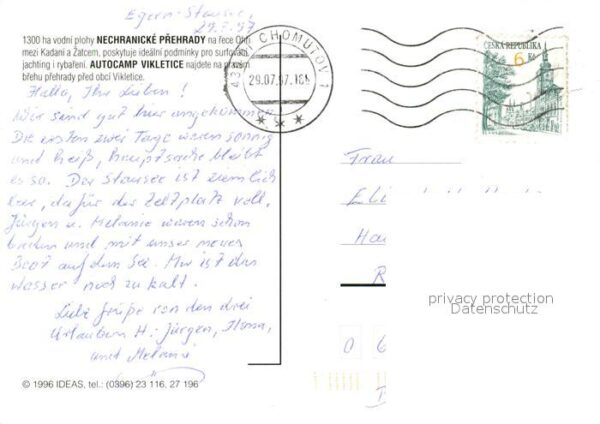 Egerer-Stausee,
29.7.97
1300 ha vodní plohy NECHRANICKÉ PŘEHRADY na řece Ohři
mezi Kadaní a Žatcem, poskytuje ideální podmínky pro surfování,
jachting i rybaření. AUTOCAMP VIKLETICE najdete na pravém
břehu přehrady před obcí Vikletice.
Hallo, Ihr Lieben!
Wir sind gut hier angekommen.
Die ersten zwei Tage waren sonnig
und heiß, hauptsache bleibt
es so. Der Stausee ist ziemlich
leer, dafür der Zeltplatz voll.
Jürgen u. Melanie waren schon
baden und mit unser neuen
Boot auf dem See. Mir ist das
Wasser noch zu kalt.
Liebe Grüße von den drei
Urlaubern H. Jürgen, Ilona,
und Melanie
© 1996 IDEAS, tel.: (0396) 23 116, 27 196
CHOMUTOV 1
29.07.97.18
ČESKÁ REPUBLIKA
6 Kč
Frau
Eli
Ha
R
privacy protection
Datenschutz
0 6